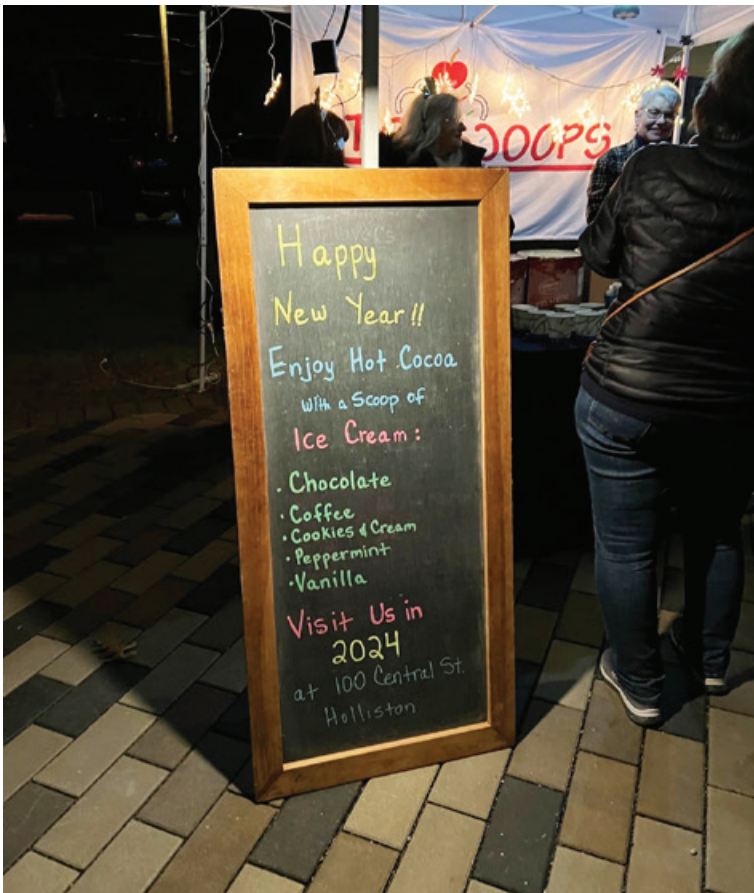 OOPS
Happy
New Year!!
Enjoy Hot Cocoa
With a Scoop of
Ice Cream:
• Chocolate
• Coffee
• Cookies & Cream
• Peppermint
• Vanilla
Visit Us in
2024
at 100 Central St.
Holliston